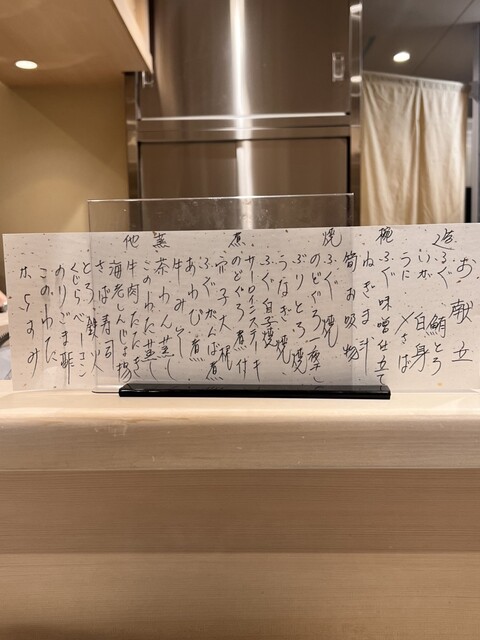 お献立
造
ふぐ 鮪とろ
いか 白身
うに 〆さば
椀
ふぐ味噌仕立て
ねぎま汁
筍お吸物
焼
ふぐ焼
のどぐろ一夜干し
ぶりとろ焼
うなぎ焼
ふぐ白子焼
サーロインステーキ
煮
のどぐろ煮付
穴子大根
ふぐがんば煮
あわび煮
蒸
牛みそ
茶わん蒸し
このわた蒸し
他
牛肉たたき
海老しんじょ揚
さば寿司
とろ鉄火
くじらベーコン
のりごま酢
このわた
カラスミ